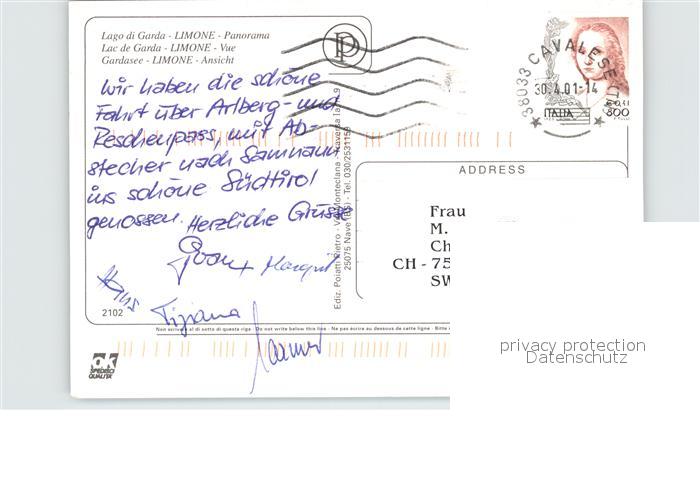 Lago di Garda - LIMONE - Panorama
Lac de Garda - LIMONE - Vue
Gardasee - LIMONE - Ansicht
Wir haben die schöne
Fahrt über Arlberg- und
Reschenpass, mit Ab-
stecher nach Samnaun
ins schöne Südtirol
genossen. Herzliche Grüsse
Margrit
Tiziana
2102
Non scrivere al di sotto di questa riga - Do not write below this line - Ne pas écrire au dessous de cette ligne - Bitte
OK
SPEDISCI
QUALITÀ!
Ediz. Poiatti Pietro - Via Monteclana - Traversa
25075 Nave (BS) - Tel. 030/2531159
P
38033 CAVALESE (TN)
30.4.01-14
ITALIA
€ 0,41
800
ADDRESS
Frau
M.
Ch
CH - 75
SW
privacy protection
Datenschutz